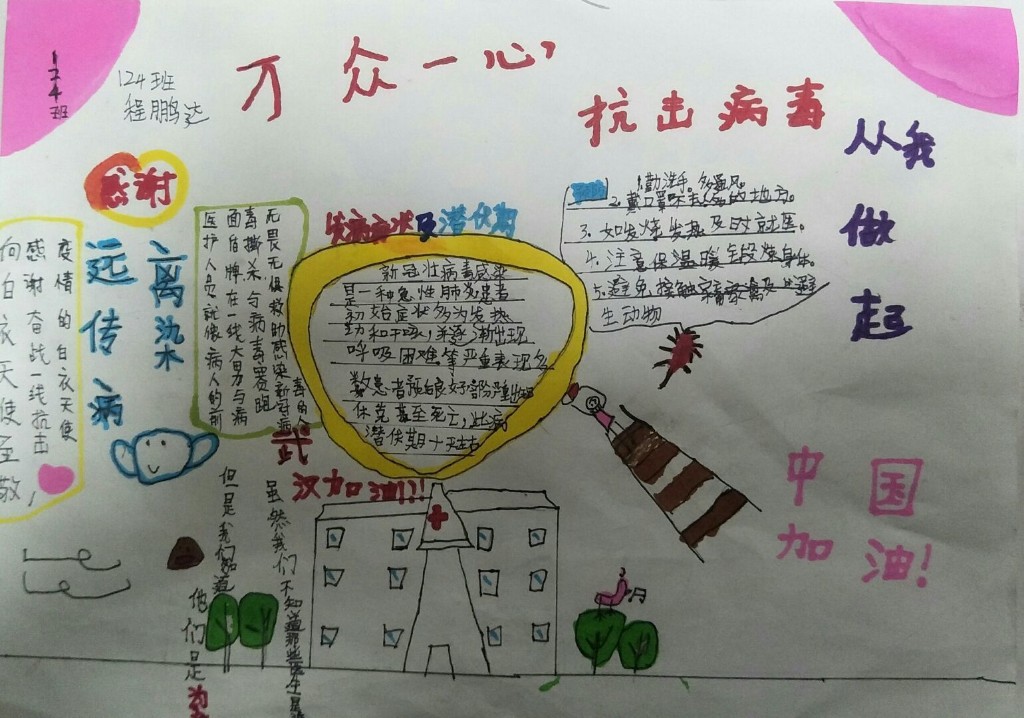 124班
124班
程鹏达
万众一心,
抗击病毒
从我
做
起
感谢
远离
传染
病
疫情的白衣天使
感谢奋战一线抗击
向白衣天使至
敬,
无畏无惧救助感染新冠病
毒的人
毒撕杀与病毒赛跑
面自牌在一线大男与病
医护人员就像病人的前
发病症状及潜伏期
新冠壮病毒感染
是一种急性肺炎患者
初始症状多为发热
和干咳,并逐渐出现
呼吸困难等严重表现多
数患者预良好部份严重出现
休克甚至死亡,此病
潜伏期十天左右
1.勤洗手。多通风。
2.戴口罩不去的地方。
3.如发烧发热及时就医。
4.注意保温暖锻炼身体。
5.避免接触
生动物
武
汉加油!!!
中国
加油!
虽然我们
不知道那些医生是
但是我们知道
他们是
为